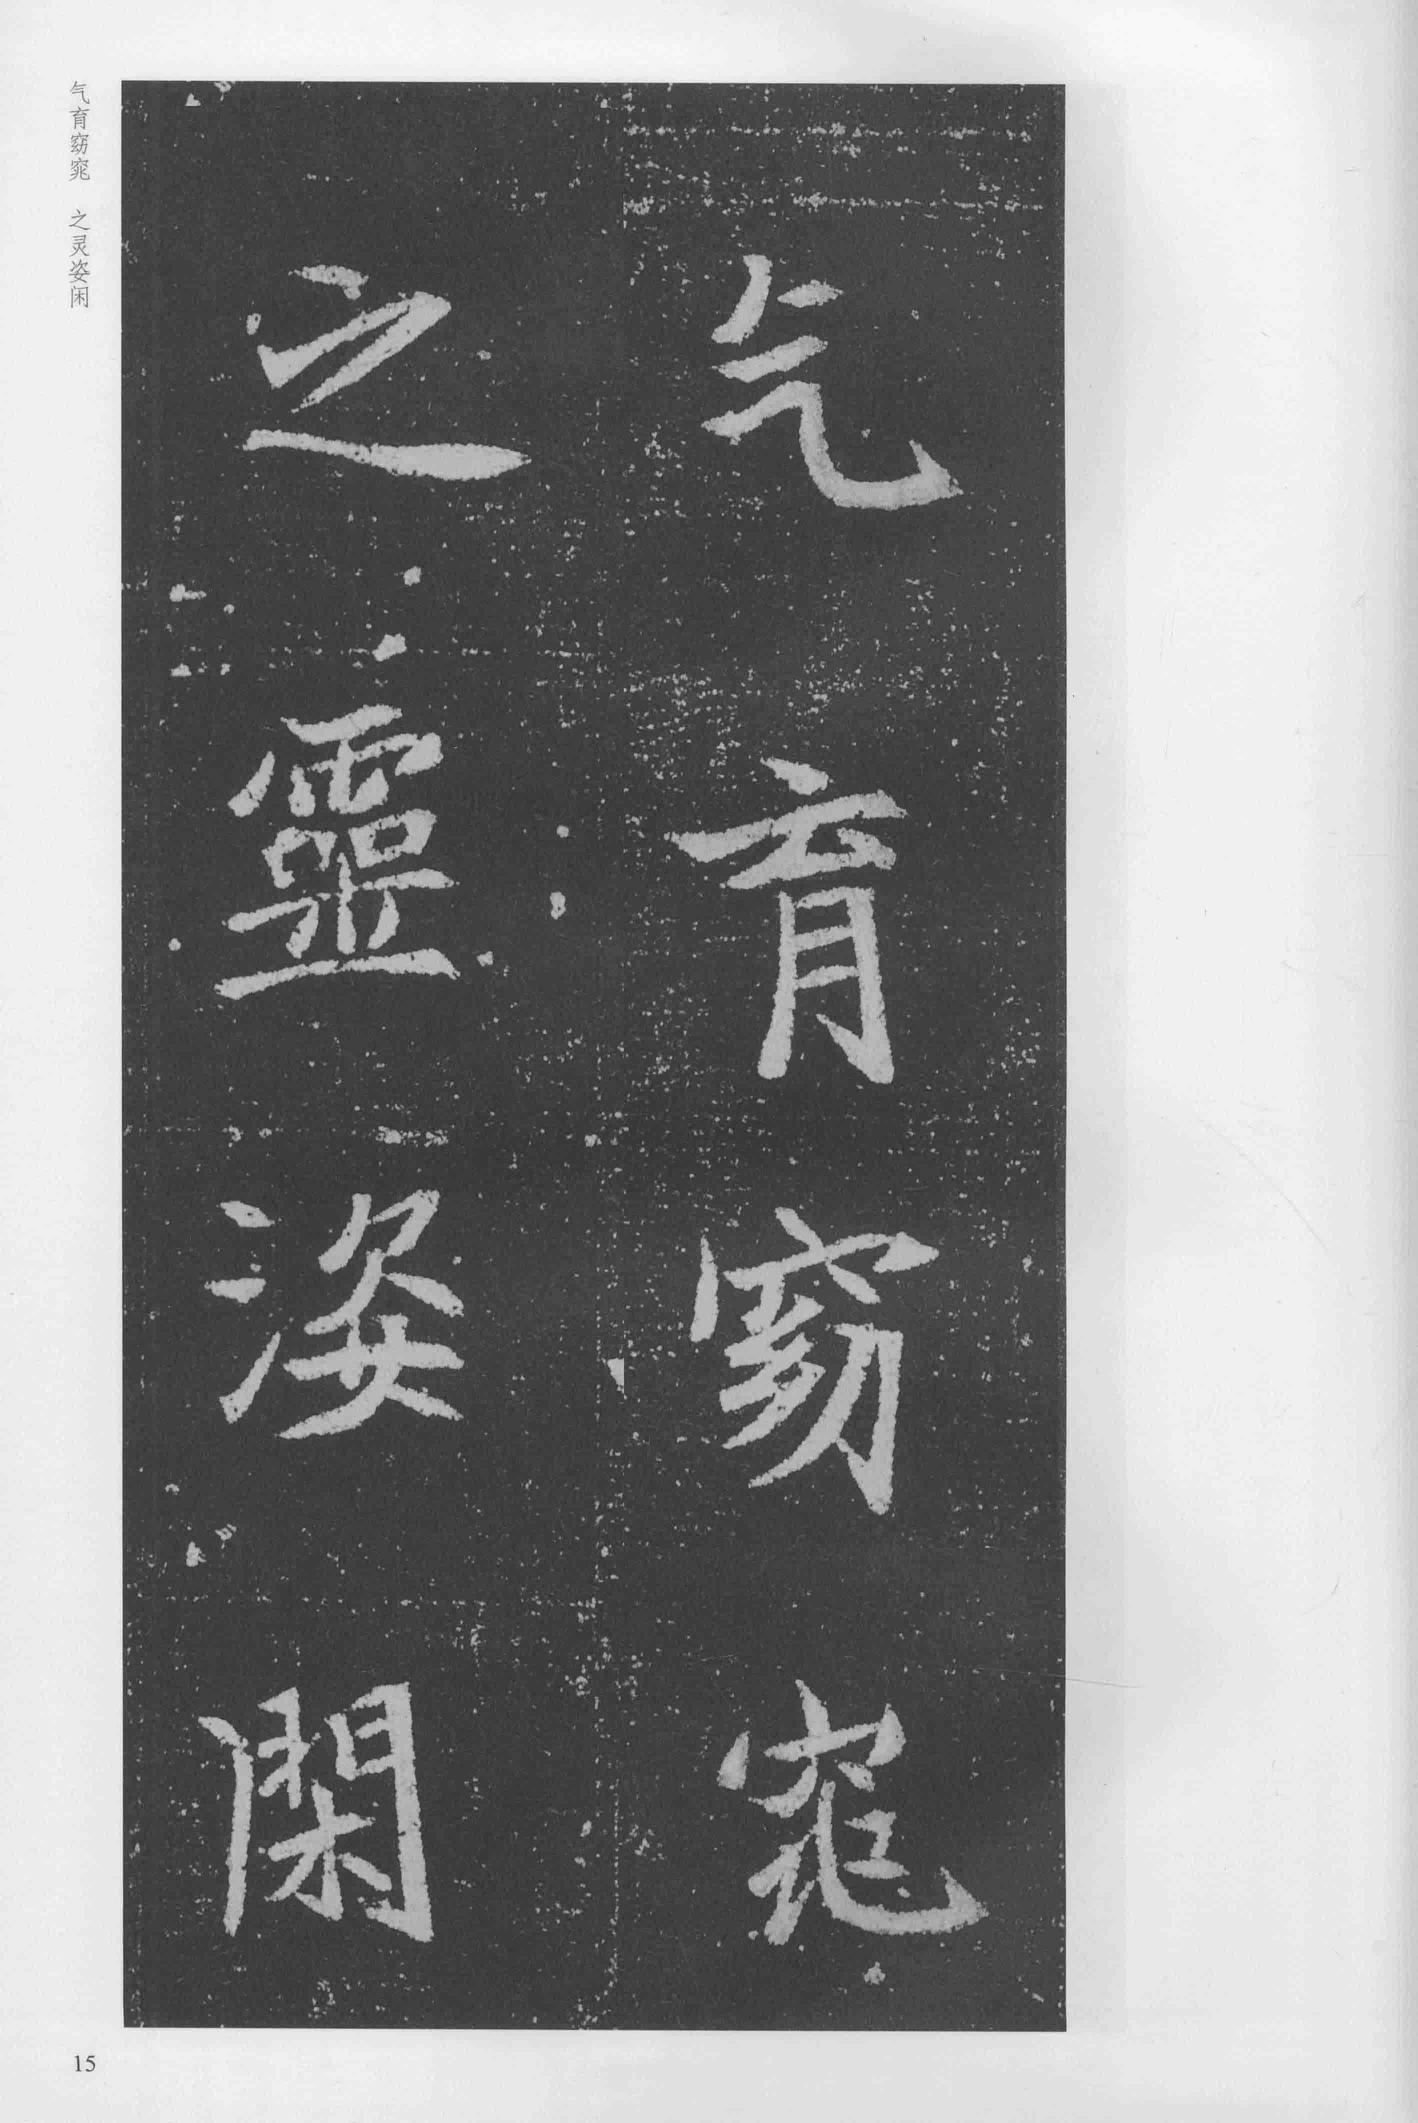 气育窈窕
之靈姿閑
气育窈窕　之灵姿闲
15